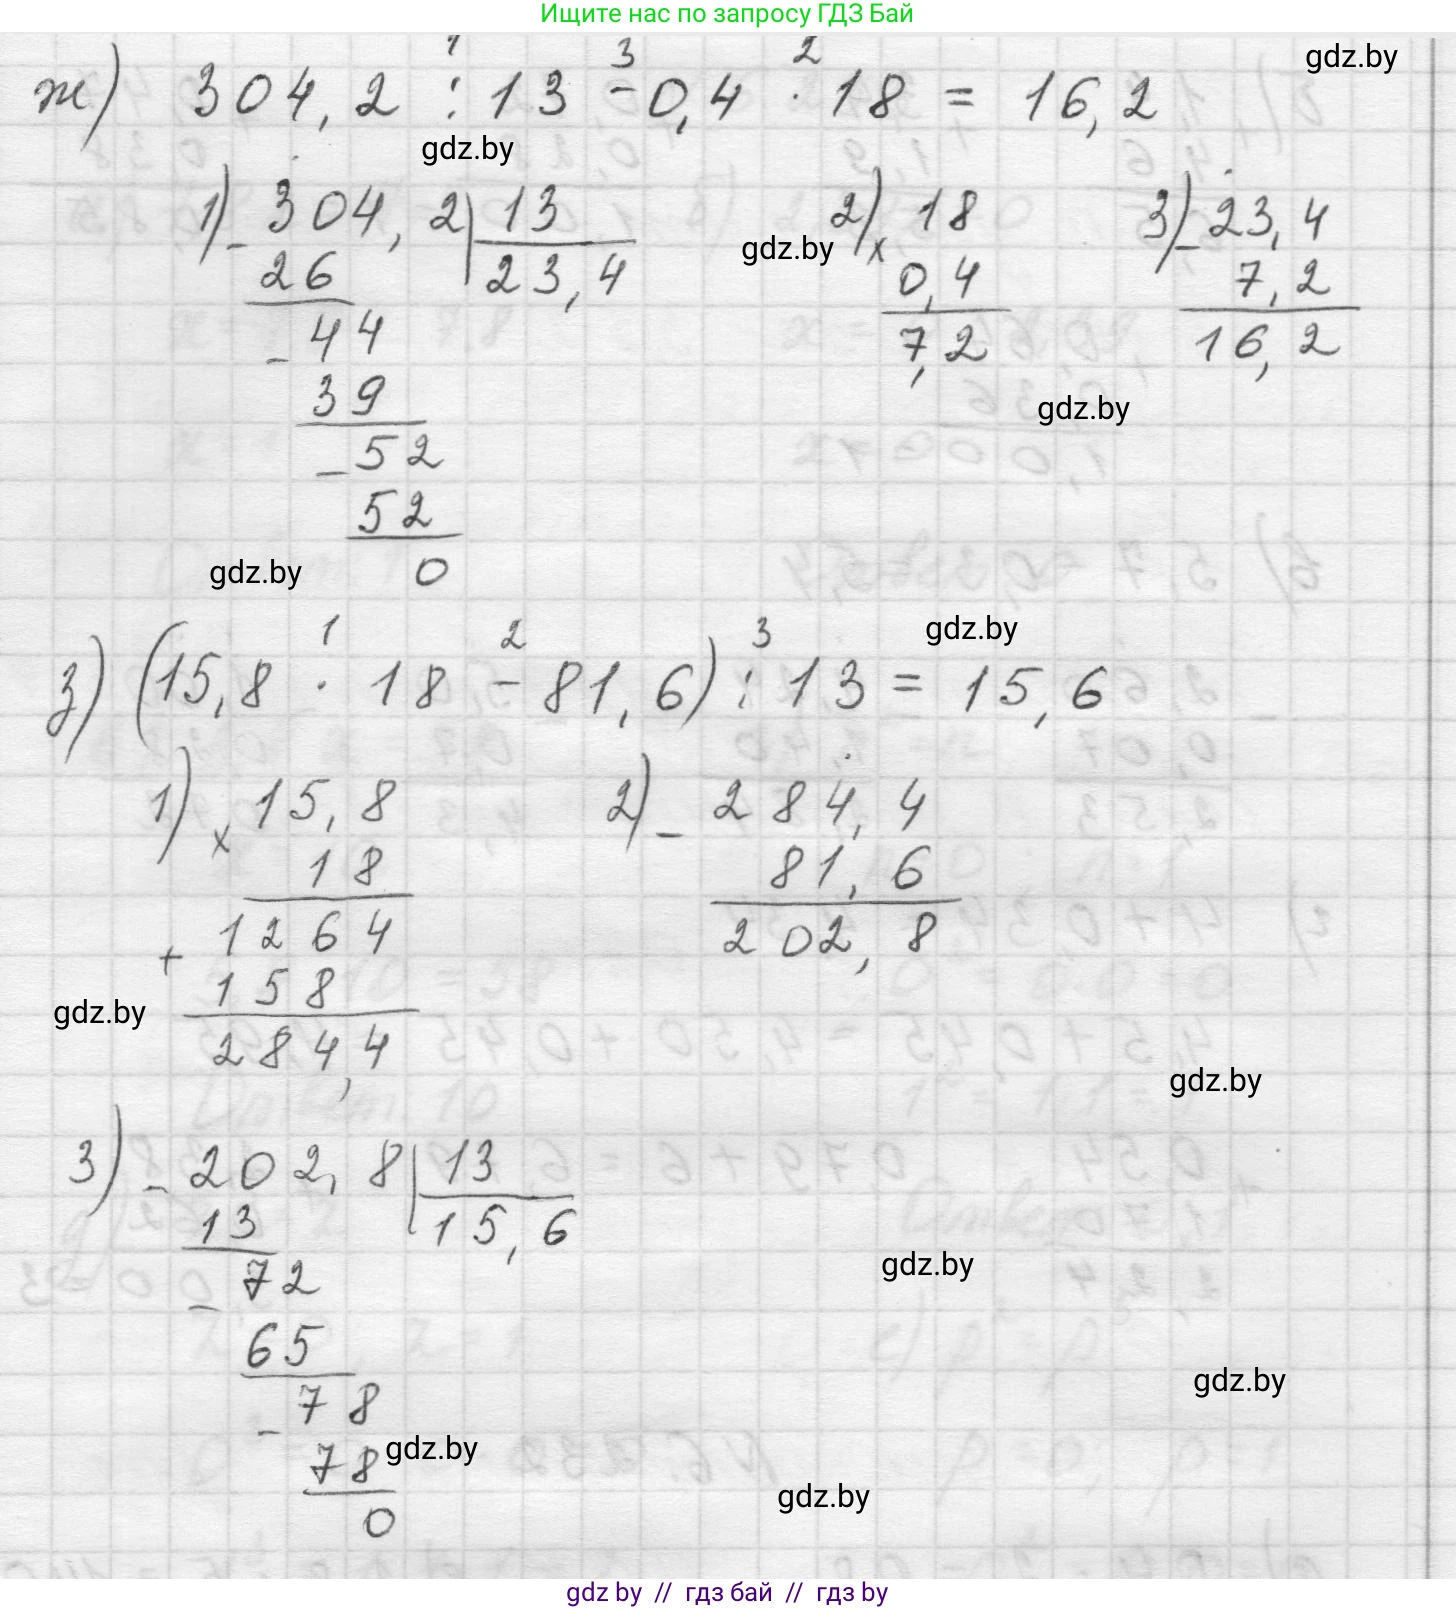 Ищите нас по запросу ГДЗ Бай
gdz.by
1 3 2
ж) 304,2 : 13 - 0,4 · 18 = 16,2
gdz.by
1) - 304,2 | 13
26 23,4
- 44
39
- 52
52
0
2) × 18
0,4
7,2
gdz.by
3) - 23,4
7,2
16,2
gdz.by
gdz.by
gdz.by
1 2 3
з) (15,8 · 18 - 81,6) : 13 = 15,6
1) × 15,8
18
+ 1264
158
284,4
2) - 284,4
81,6
202,8
gdz.by
gdz.by
3) - 202,8 | 13
13 15,6
- 72
65
- 78
78
0
gdz.by
gdz.by
gdz.by
gdz.by
gdz by // гдз бай // gdz by